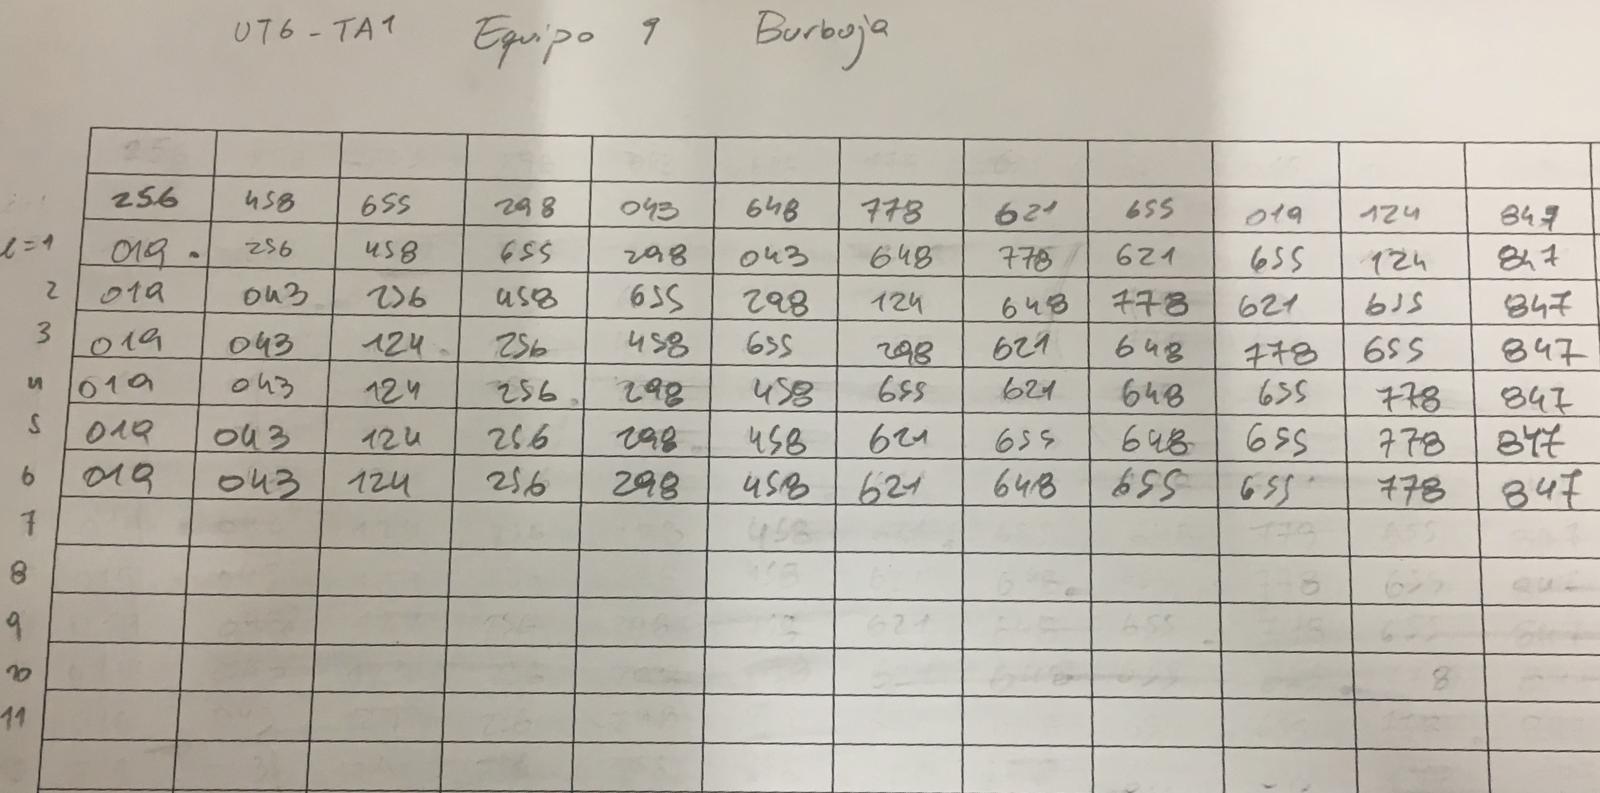 UT6-TA1 Equipo 9 Burbuja
256 458 655 298 043 648 778 621 655 019 124 847
i=1 019 256 458 655 298 043 648 778 621 655 124 847
2 019 043 256 458 655 298 124 648 778 621 655 847
3 019 043 124 256 458 655 298 621 648 778 655 847
4 019 043 124 256 298 458 655 621 648 655 778 847
5 019 043 124 256 298 458 621 655 648 655 778 847
6 019 043 124 256 298 458 621 648 655 655 778 847
7
8
9
10
11